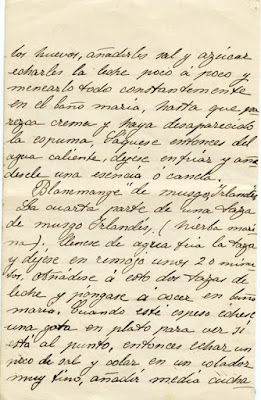 los huevos, añadirles sal y azúcar
echarles la leche poco á poco y
menearlo todo constantemente
en el baño maria, hasta que pa
rezca crema y haya desaparecido
la espuma, Saquese entonces del
agua caliente, dejese enfriar y aña
desele una esencia o canela.
Blanmangé "de musgo, Irlandés"
La cuarta parte de una taza
de musgo Irlandés, (hierba mari
na). Llenese de agua fria la taza
y dejese en remojo unos 20 minu
tos. Añadese á esto dos tazas de
leche y póngase á cocer en baño
maria. Cuando esté espeso echese
una gota en plato para ver si
está al punto, entonces echar un
poco de sal y colar en un colador
muy fino, añadir media cucha